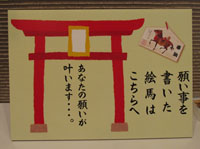 願い事を
書いた
絵馬は
こちらへ
あなたの願いが
叶います・・・。